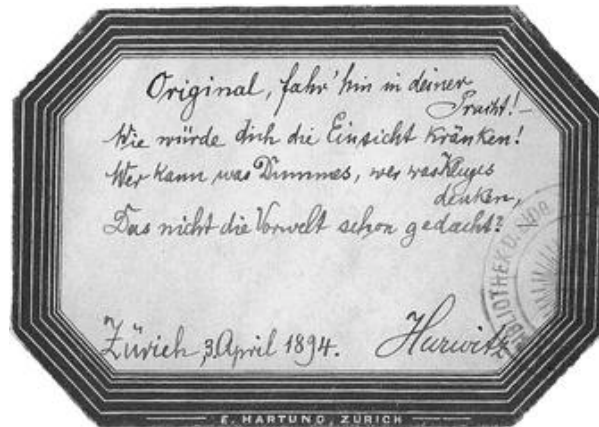 Original, fahr' hin in deiner
Pracht! –
Wie würde dich die Einsicht kränken!
Wer kann was Dummes, wer was Kluges
denken,
Das nicht die Vorwelt schon gedacht? –
Zürich, 3. April 1894. Hurwitz
BIBLIOTHEK
E. HARTUNG, ZÜRICH